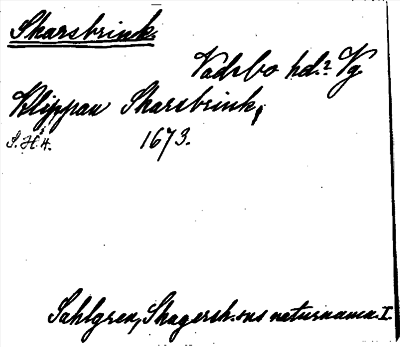 Skarsbrink.
Vadsbo hd.? Vg.
Klippan Skarsbrink,
S. 44. 1673.
Sahlgren, Skagersh:ns naturnamn. I.